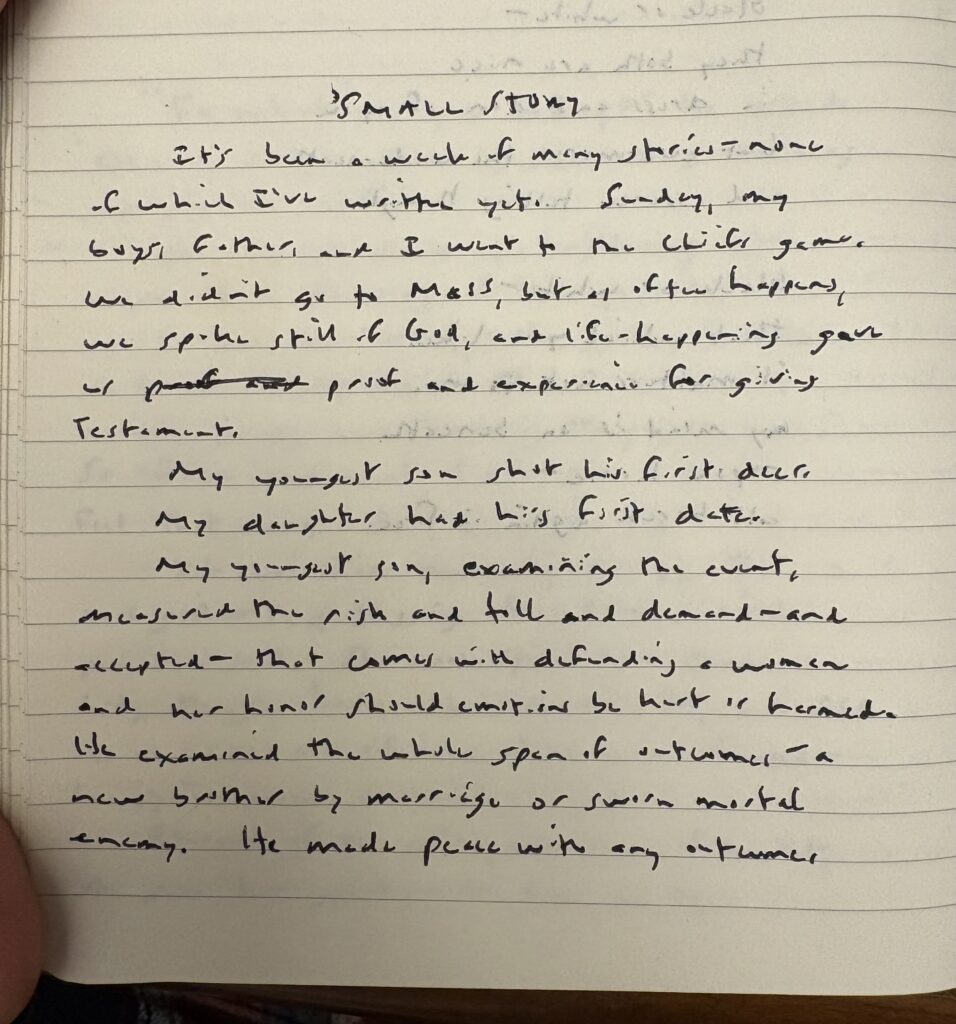 SMALL STORY
It's been a week of many stories - none
of which I've written yet. Sunday, my
boys, father, and I went to the Chiefs game.
We didn't go to Mass, but as often happens,
we spoke still of God, and life-happening gave
us proof and proof and experience for giving
Testament.
My youngest son shot his first deer.
My daughter had his first date.
My youngest son, examining the event,
measured the risk and toll and demand - and
accepted - that comes with defending a woman
and her honor should emotions be hurt or harmed.
He examined the whole span of outcomes - a
new brother by marriage or sworn mortal
enemy. He made peace with any outcomes